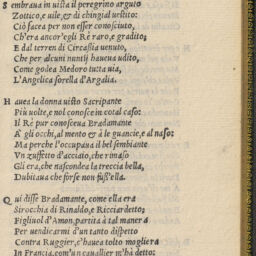 Sembraua in uista il peregrino arguto
Zottico, e uile, & di chingial uestito:
Ciò facea per non esser conosciuto,
Ch'era ancor'egli Rè raro, e gradito;
E dal terren di Circassia uenuto,
Che per alcuni nuntij haueua udito,
Come godea Medoro tutta uia,
L'Angelica sorella d'Argalia.
Hauea la donna uisto Sacripante
Più uolte, e nol conosce in cotal caso:
Il Rè pur conosceua Bradamante
A gli occhi, al mento & à le guancie, e al naso:
Ma perche l'occupaua il bel sembiante
Vn zuffetto d'acciaio, che rimaso
Gli era, che nascondea la treccia bella,
Dubitaua che forse non fuss'ella.
Qui disse Bradamante, come ella era
Sirocchia di Rinaldo, e Ricciardetto;
Figliuol d'Amon, partita à tal manera
Per uendicarmi d'un tanto dispetto
Contra Ruggier, c'hauea tolto mogliera
In Francia, com'un cauallier m'hà detto: